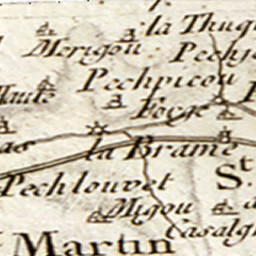 la Thuq
Merigou
Pech
Pechpicou
Haute
Forge
la Brame
Pechlouvet
St
Migou
Casalg
Martin